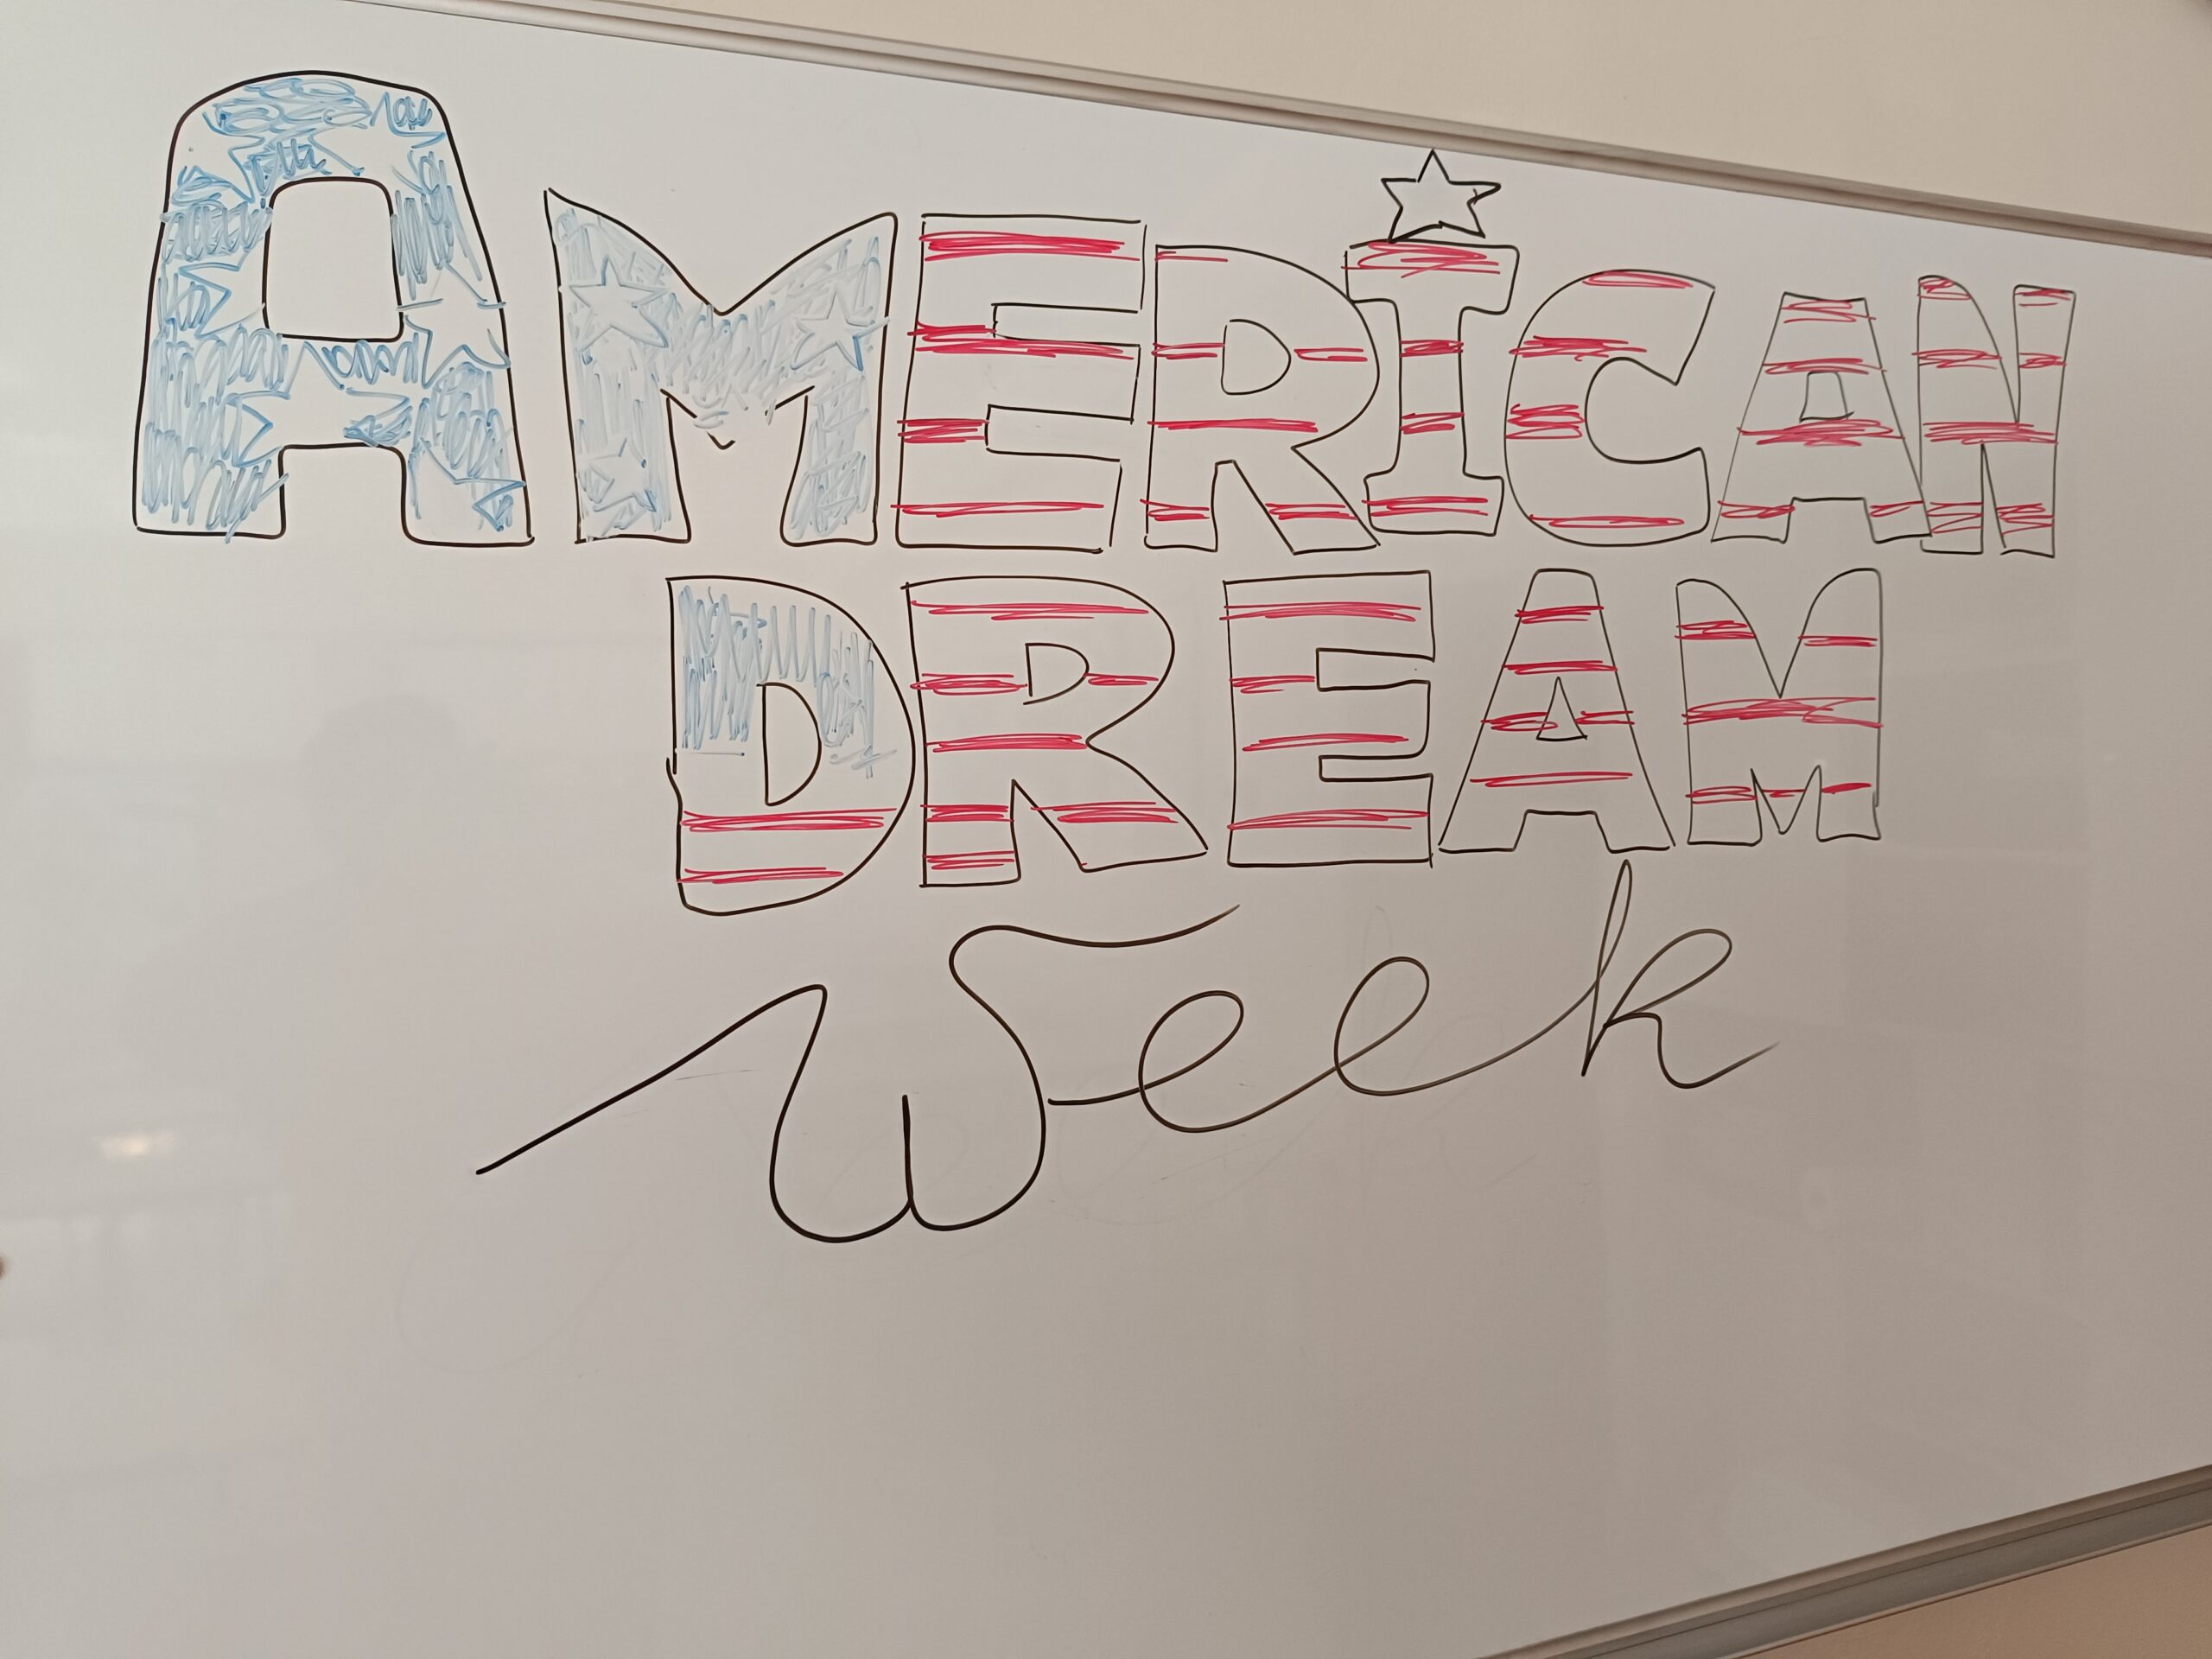 AMERICAN
DREAM
Week